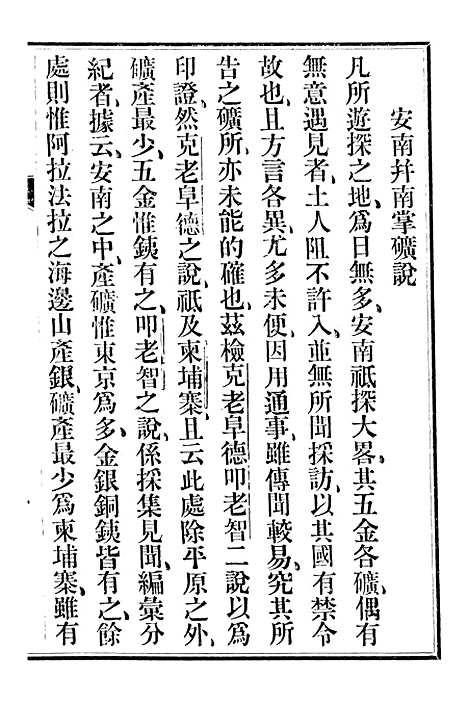 安南幷南掌礦說
凡所遊探之地、爲日無多、安南祇探大畧、其五金各礦、偶有
無意遇見者、土人阻不許入、並無所聞採訪、以其國有禁令
故也、且方言各異、尤多未便、因用通事、雖傳聞較易、究其所
告之礦所、亦未能的確也、茲檢克老阜德叩老智二說以爲
印證、然克老阜德之說、祇及柬埔寨、且云此處除平原之外、
礦產最少、五金惟銕有之、叩老智之說、係採集見聞、編彙分
紀者、據云、安南之中、產礦惟東京爲多、金銀銅銕皆有之、餘
處則惟阿拉法拉之海邊山產銀、礦產最少爲柬埔寨、雖有